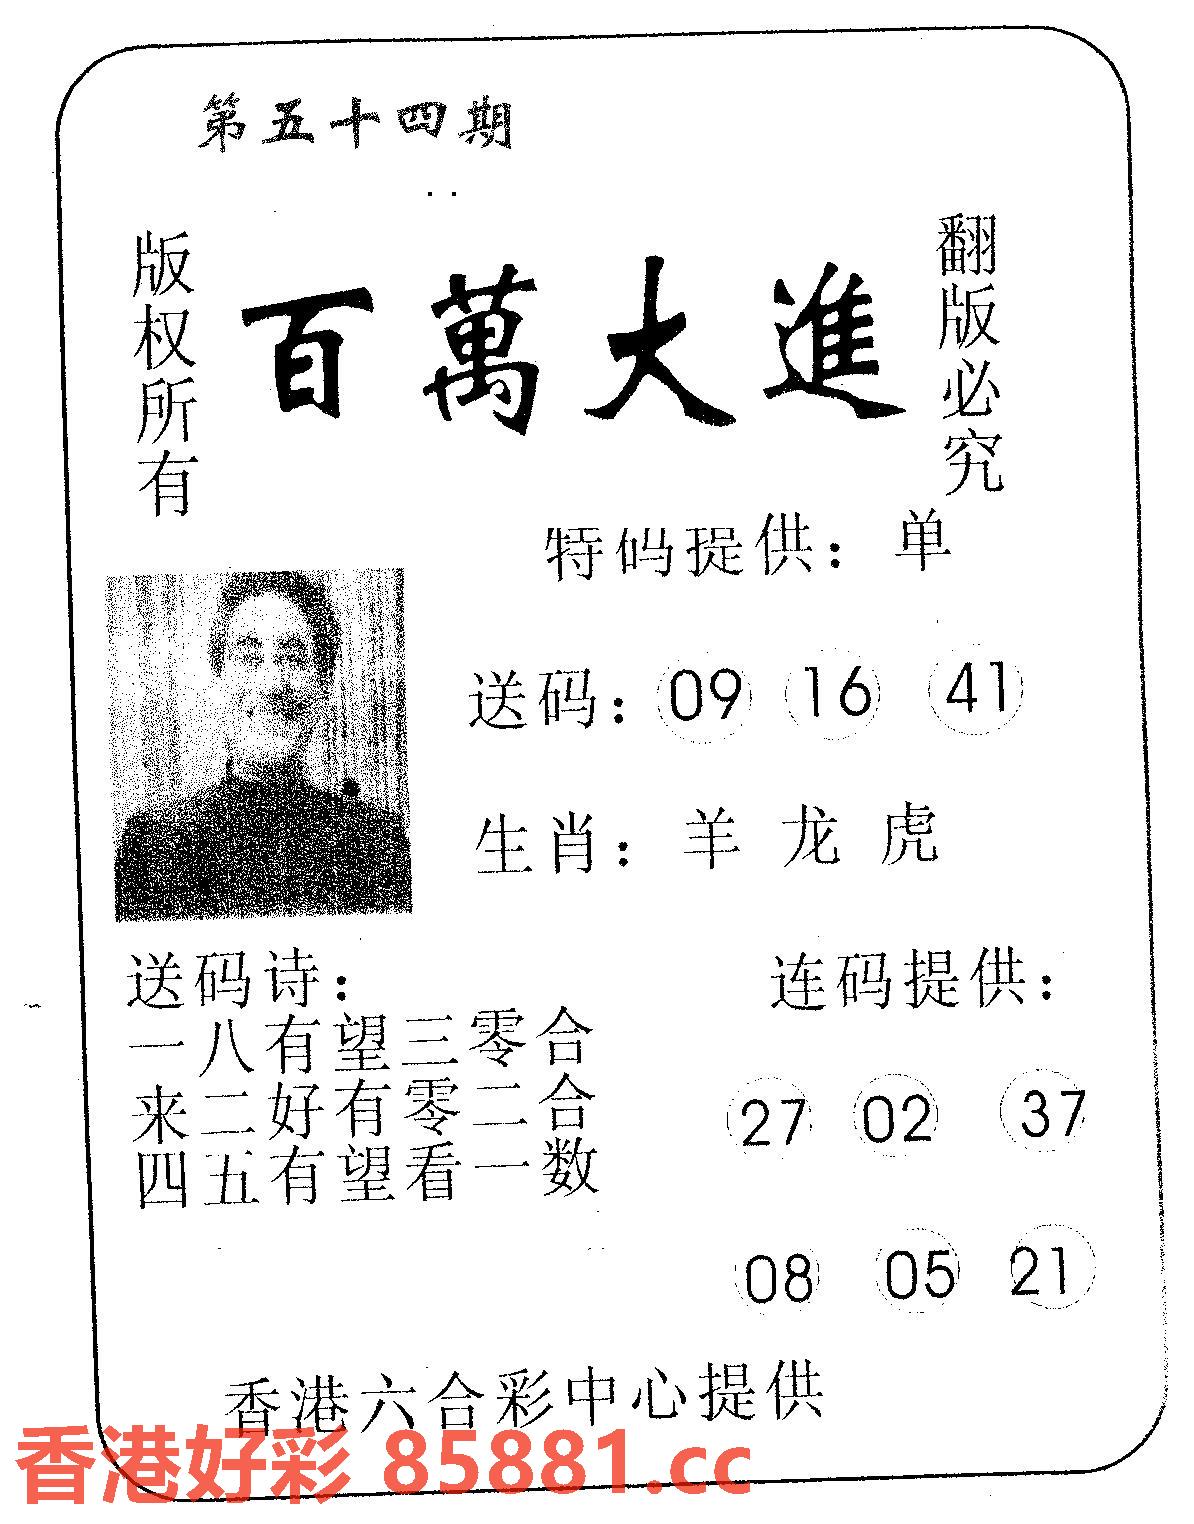 第五十四期
版权所有
百萬大進
翻版必究
特码提供：单
送码：09 16 41
生肖：羊 龙 虎
送码诗：
一八有望三零合
来二好有零二合
四五有望看一数
连码提供：
27 02 37
08 05 21
香港六合彩中心提供
香港好彩 85881.cc